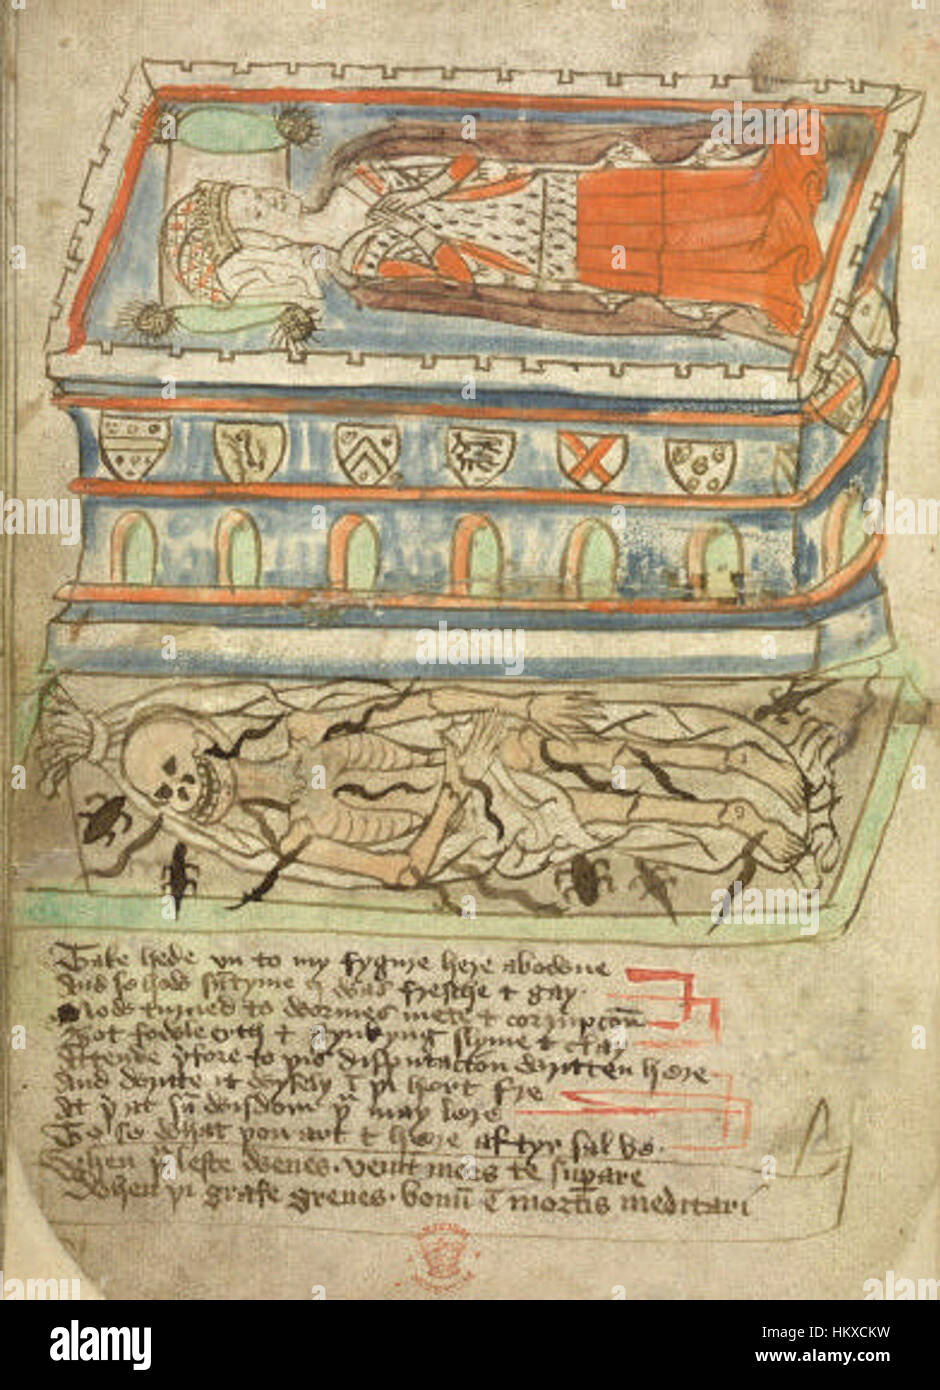 Take hede vn to my fygure here abowne
And se how su͞tyme I was fresche & gay
Now turned to wormes mete & corrupco͞n
Bot fowle erth & stynkyng slyme & clay
Attende þfore to þis disputacion written here
And wryte it wysely I͞ þi hert fre
At þ at su͞ wisdom þu may lere
To se what þou art & here aftyr sal be
When þu leste wenes venit mors te superare
When þi grafe greues bonu͞ e͞ mortis meditari
alamy
Image ID: HKXCKW
www.alamy.com